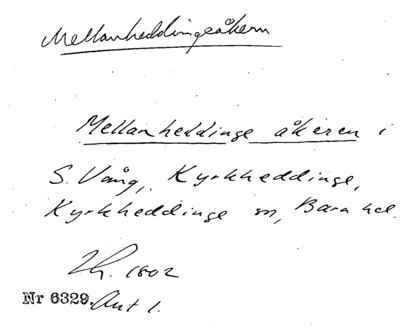 Mellanheddingeåkern
Mellanheddinge åkeren i
S. Vång, Kyrkheddinge,
Kyrkheddinge sn, Bara hd.
Zh. 1802
Nr 6329. Akt 1.